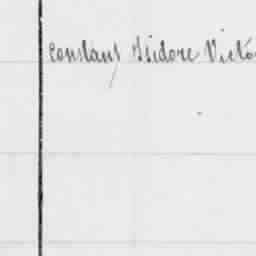 Constant Isidore Victo